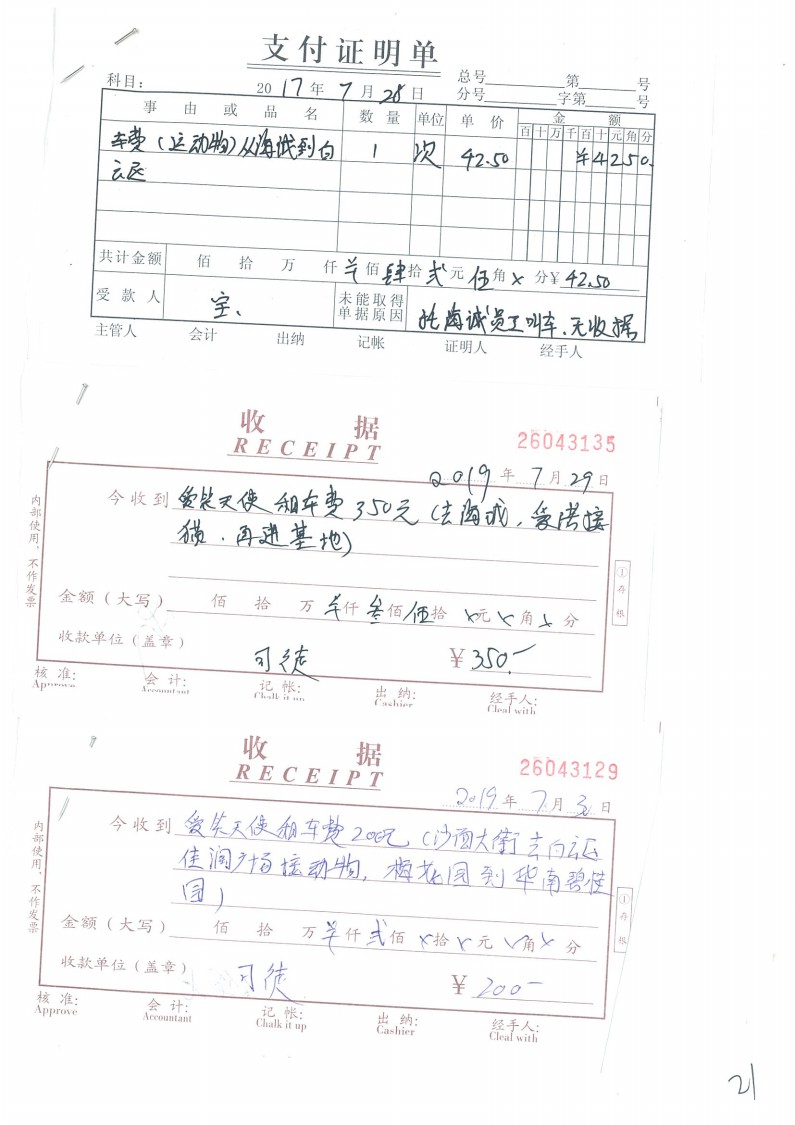 支付证明单
科目：
2017年7月28日
总号 第 号
分号 字第 号
事由或品名 数量 单位 单价 金额
百十万千百十元角分
车费（运动物）从海诚到白 1 次 42.50 ¥4250
云区
共计金额 佰 拾 万 仟 佰肆拾贰元伍角x分¥42.50
受款人
未能取得
单据原因
托海诚员工叫车、无收据
主管人 会计 出纳 记帐 证明人 经手人
收据
RECEIPT
26043135
2019年7月29日
今收到 爱芭天使 租车费350元（去海诚，
猫．再进基地）
金额（大写） 佰 拾 万 仟叁佰伍拾x元x角x分
收款单位（盖章） 司徒 ¥350.-
核准： 会计： 记帐： 出纳： 经手人：
Approve Accountant Chalk it up Cashier Cleal with
内部使用，不作发票
①存根
收据
RECEIPT
26043129
2019年7月3日
今收到 天使租车费200元（沙面大街去白云区
佳润广场接动物，梅花园到华南碧桂
园）
金额（大写） 佰 拾 万 仟贰佰x拾x元x角x分
收款单位（盖章） 司徒 ¥200-
核准： 会计： 记帐： 出纳： 经手人：
Approve Accountant Chalk it up Cashier Cleal with
内部使用，不作发票
①存根
21